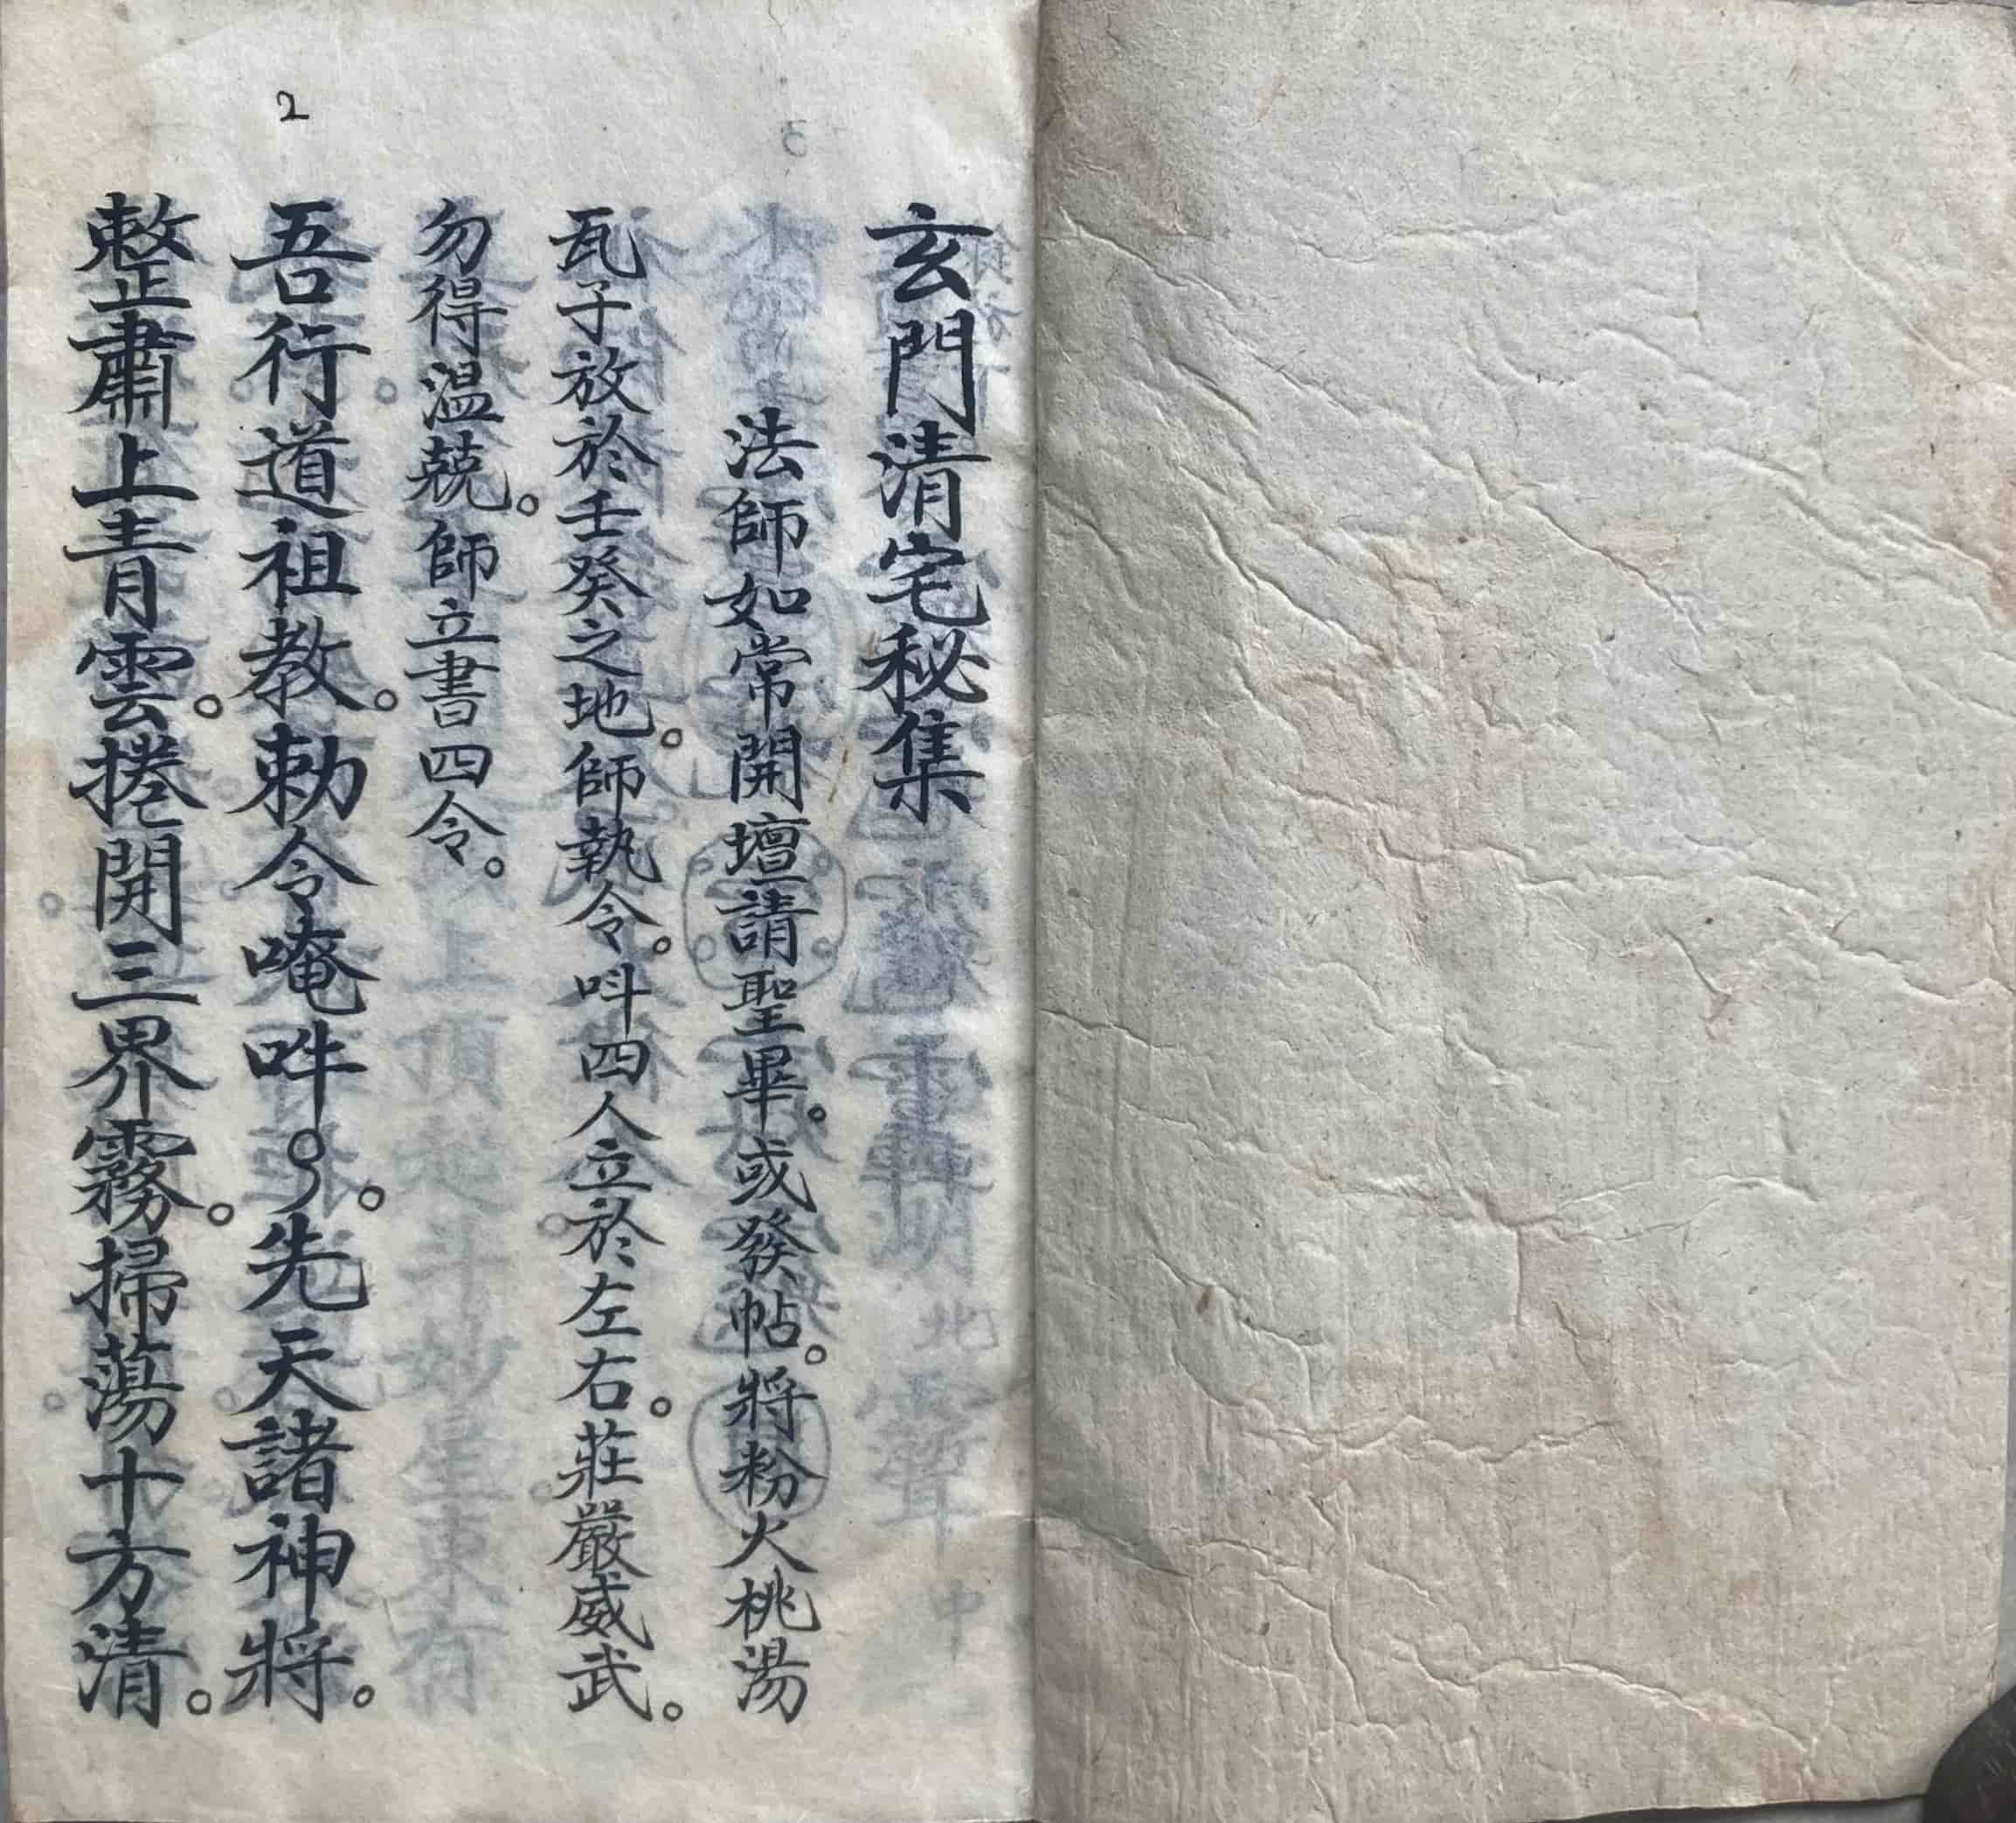 2
玄門清宅秘集
法師如常開壇請聖畢。或發帖。將粉火桃湯
瓦子放於壬癸之地。師執令。呌四人立於左右。莊嚴威武。
勿得温兢。師立書四令。
吾行道祖教。勅令唵吽。先天諸神將。
整肅上青雲。捲開三界霧。掃蕩十方清。